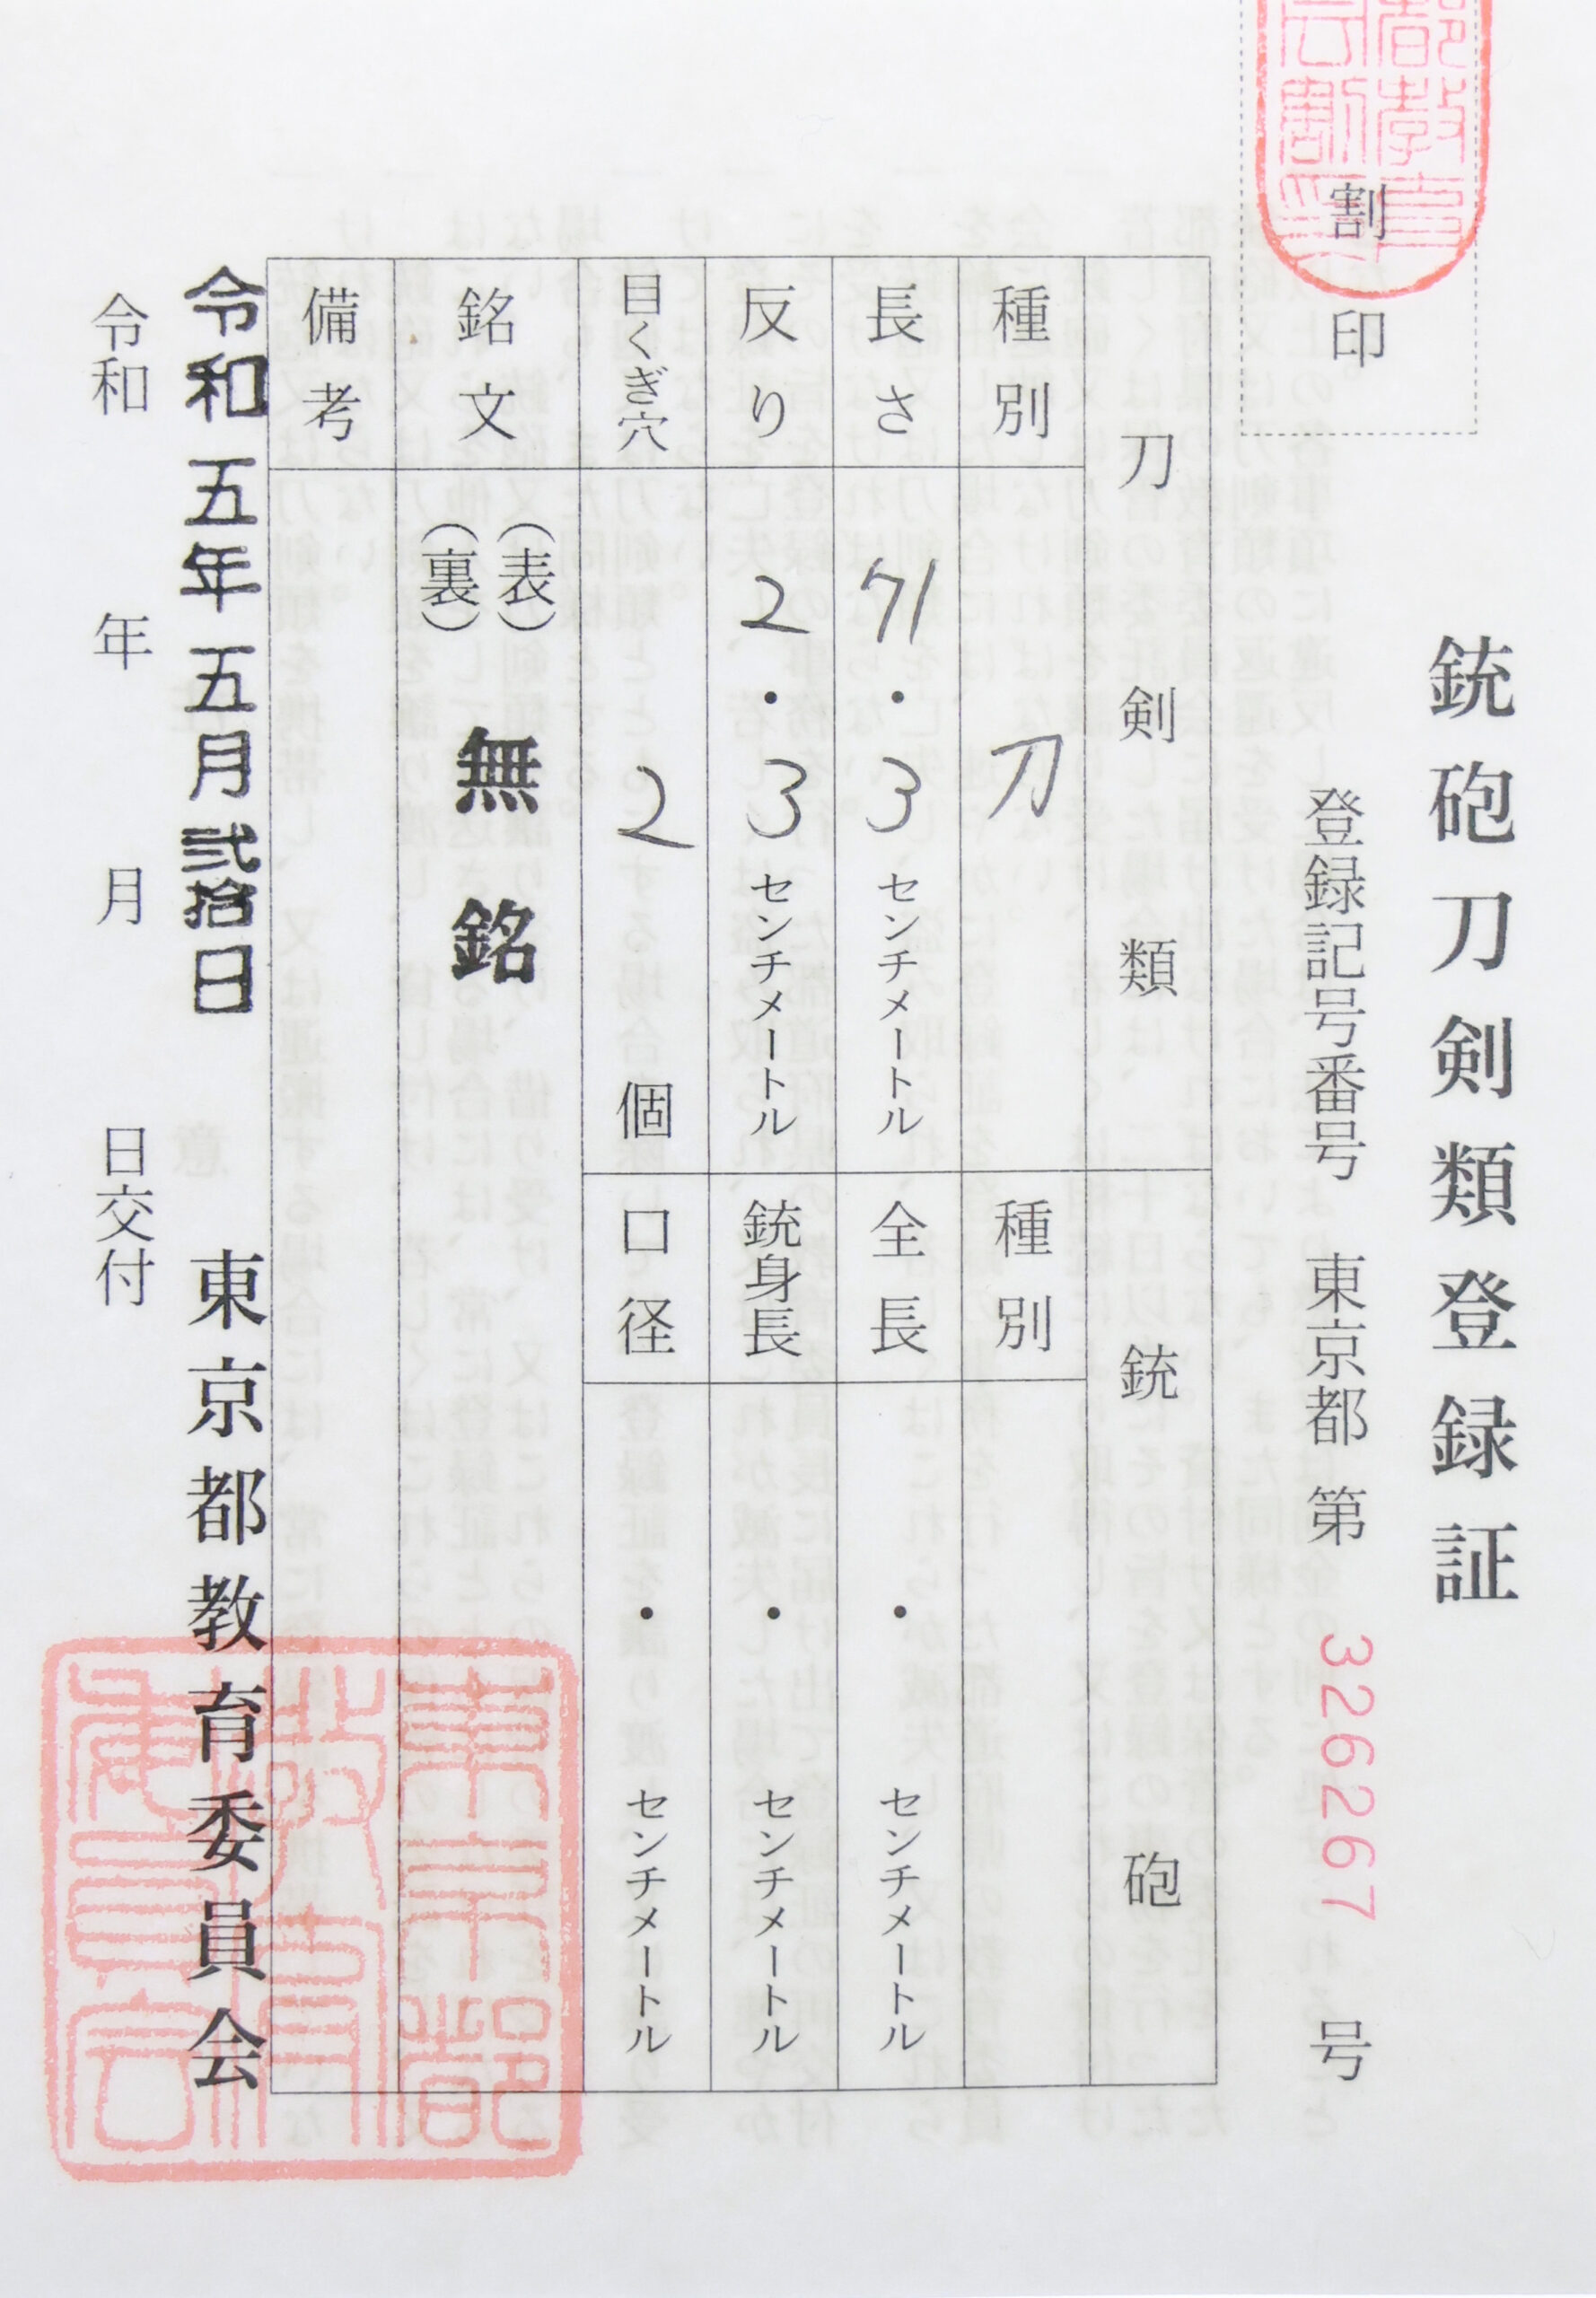 銃砲刀剣類登録証
登録記号番号 東京都 第 326267 号
割印
刀剣類
種別 刀
長さ 71・3センチメートル
反り 2・3センチメートル
目くぎ穴 2 個
銃砲
種別
全長 ・ センチメートル
銃身長 ・ センチメートル
口径 ・ センチメートル
銘文 (表) 無銘
(裏)
備考
令和五年五月弐拾日 東京都教育委員会
令和 年 月 日交付